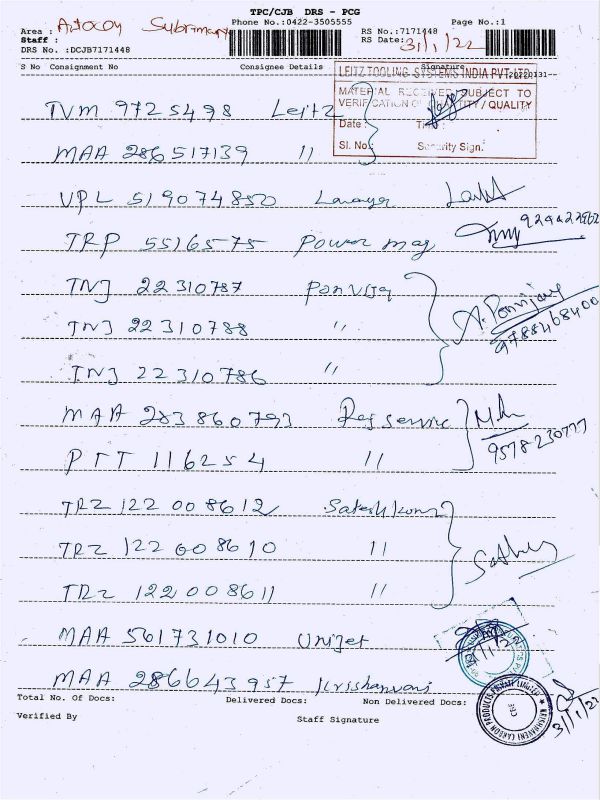 TPC/CJB DRS - PCG
Phone No.:0422-3505555 Page No.:1
Area : Subrimani
RS No.:7171448
Staff :
RS Date: 31/1/22
DRS No. :DCJB7171448
S No Consignment No Consignee Details Signature
LEITZ TOOLING SYSTEMS INDIA PVT LTD
20220131--
MATERIAL RECEIVED SUBJECT TO
VERIFICATION OF QUANTITY / QUALITY
TVM 9725498 Leitz
Date : Time :
MAA 286517139 11
Sl. No.: Security Sign.
VPL 519074850
TRP 5516575 Power mag
TNJ 22310787
TNJ 22310788 "
9788468400
TNJ 22310786 "
MAA 283860793 Raj service
9578230777
PTT 116254 11
TRZ 122 008612
TRZ 122 008610 11
TRZ 122 008611 11
MAA 561731010 Unijet
MAA 286643957 Krishanvani
Total No. Of Docs: Delivered Docs: Non Delivered Docs:
KRISHNAVENI CARBON PRODUCTS PRIVATE LIMITED
CBE
31/1/22
Verified By Staff Signature